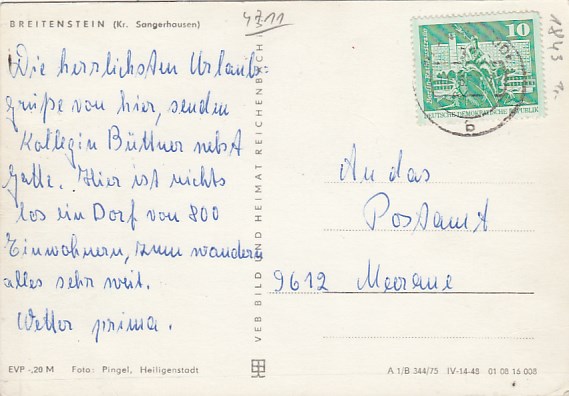 BREITENSTEIN (Kr. Sangerhausen)
4711
Die herrlichsten Urlaub-
grüße von hier, senden
Kollegin Büttner nebst
Gatte. Hier ist nichts
los ein Dorf von 800
Einwohnern, zum wandern
alles sehr weit.
Wetter prima.
EVP -,20 M Foto: Pingel, Heiligenstadt
VEB BILD UND HEIMAT REICHENBACH
10
Berlin-Rathausstraße
DEUTSCHE DEMOKRATISCHE REPUBLIK
a
1843
An das
Postamt
9612 Meerane
A 1/B 344/75 IV-14-48 01 08 16 008